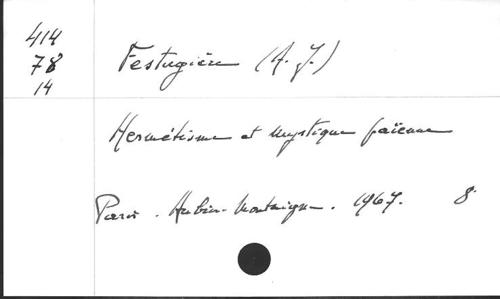 414
78
14
Festugière (A. J.)
Hermétisme et mystique païenne
Paris. Aubier-Montaigne. 1967. 8°